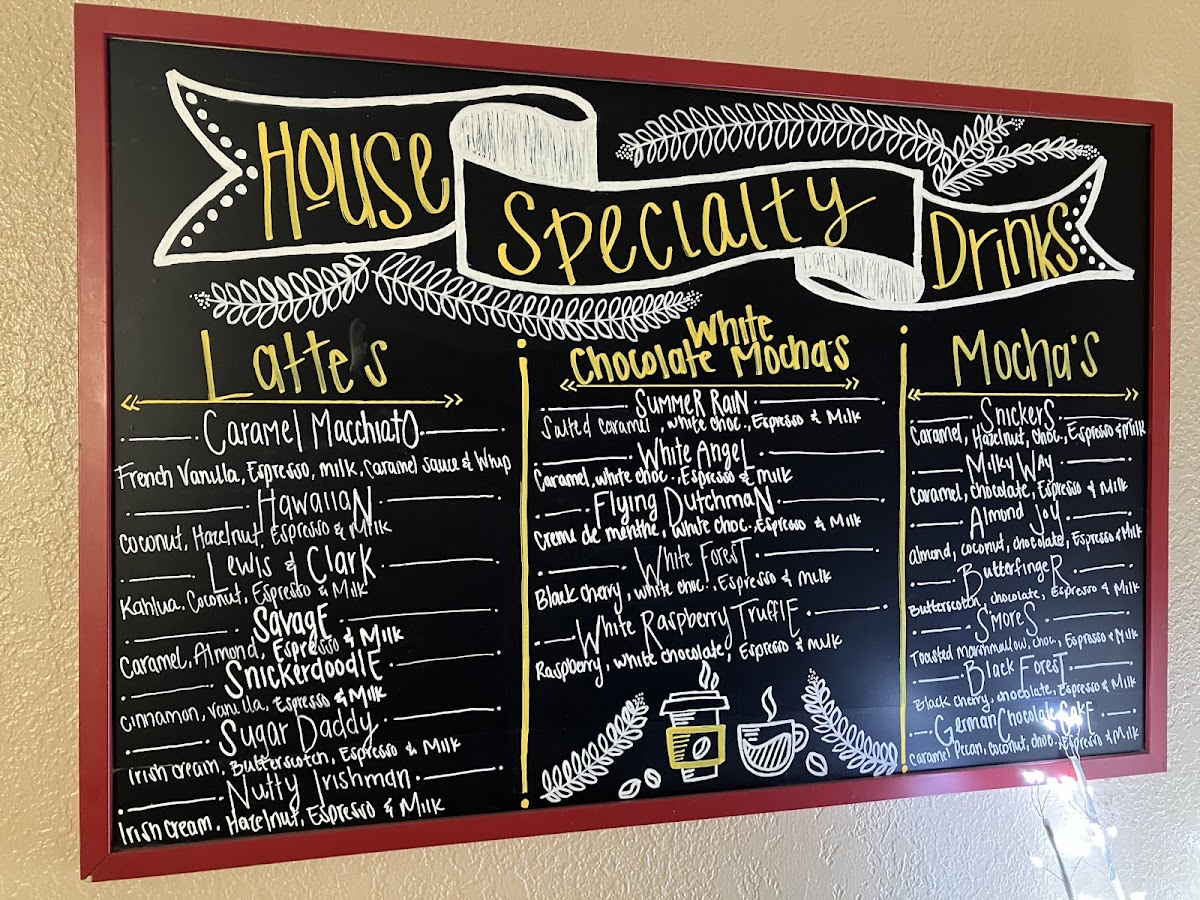 House Specialty Drinks
Latte's
Caramel Macchiato
French Vanilla, Espresso, milk, Caramel sauce & Whip
Hawaiian
Coconut, Hazelnut, Espresso & Milk
Lewis & Clark
Kahlua, Coconut, Espresso & Milk
Savage
Caramel, Almond, Espresso & Milk
Snickerdoodle
Cinnamon, Vanilla, Espresso & Milk
Sugar Daddy
Irish cream, Butterscotch, Espresso & Milk
Nutty Irishman
Irish cream, Hazelnut, Espresso & Milk
White
Chocolate Mocha's
Summer Rain
Salted caramel, white choc., Espresso & Milk
White Angel
Caramel, white choc., Espresso & Milk
Flying Dutchman
Creme de menthe, white choc., Espresso & Milk
White Forest
Black cherry, white choc., Espresso & Milk
White Raspberry Truffle
Raspberry, white chocolate, Espresso & Milk
Mocha's
Snickers
Caramel, Hazelnut, choc., Espresso & Milk
Milky Way
Caramel, chocolate, Espresso & Milk
Almond Joy
almond, coconut, chocolate, Espresso & Milk
Butterfinger
Butterscotch, chocolate, Espresso & Milk
S'mores
Toasted marshmallow, choc., Espresso & Milk
Black Forest
Black cherry, chocolate, Espresso & Milk
German Chocolate Cake
Caramel Pecan, coconut, choc., Espresso & Milk